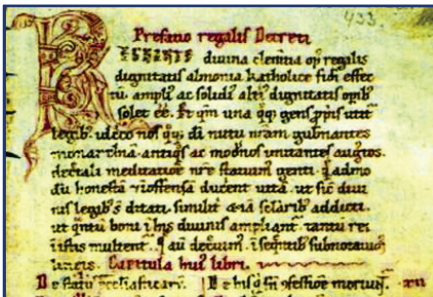 433.
Prefatio regalis Decreti
divina clem̄tia op̄ regalis
dignitatis alimonia katholice fidi effec
tū ampli᷒ ac solidi᷒ alti᷒ dignitatis opib᷒
solet eē. Et qm̄ una q̄q̨ gens p̄p̄is utit᷒
legib᷒ ideo nos q̨q̨ di nutu nram gub̄nantes
monarchiā. antiq̨s ac mod̄nos imitantes augtos.
dec̄tali meditatiōe nr̄e statuim᷒ genti q̄admo
dū honestā ⁊ inoffensā ducent uitā. ut sic̄ diui
nis legib᷒ s̄ ditati. similit̄ ⁊iā sc̄larib᷒ addicti.
ut q̄ntū boni ī his diuinis ampliant᷒. tantū rei
ī istis multent᷒. q̄ aū dec̄uim᷒. ī seq̄ntib᷒ subnotauim᷒
lineis. Capitula hui᷒ libri.
De statu